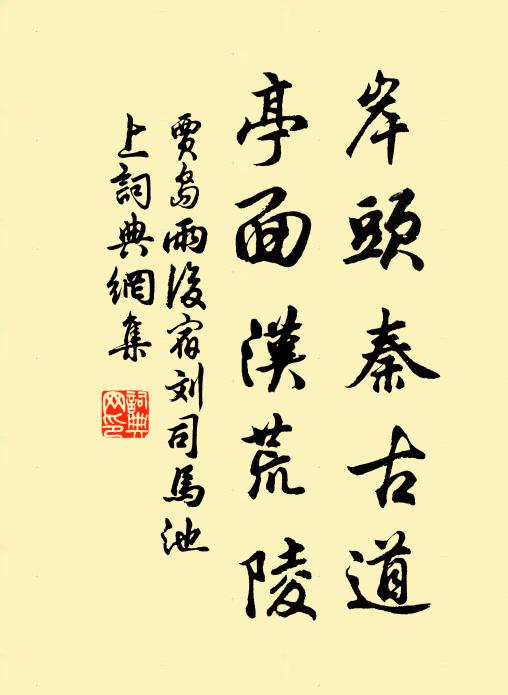 岸頭秦古道
亭面漢荒陵
賈島雨後宿刘司馬池
上詞典網集
詞典网印